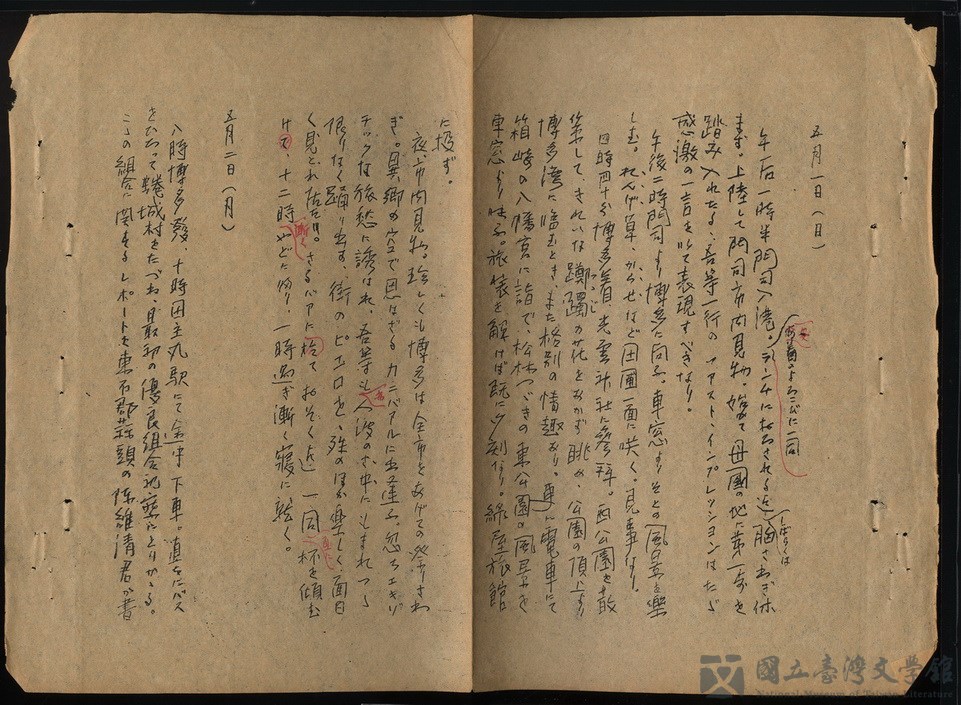 五月一日(日)
午后一時半門司入港。ランチにおろされる迄胸さわぎ休
しばらくは
まず。上陸して門司市内見物。始めて母國の地に第一歩を
踏み入れたる、吾等一行のファスト・インプレッションはたゞ
感激の一言を以て表現すべきなり。
午後二時門司より博多に向ふ。車窓よりそとの風景を樂
しむ。れんげ草、からせなど田圃一面に咲く。見事なり。
四時四十分博多着、光雲神社に參拜。西公園を散
策して、きれいな躑躅の花をあかず眺め、公園の頂上より
つゝじ
博多灣に臨むとき、また格別の情趣あり。更に電車にて
箱崎の八幡宮に詣で、松林つゞきの東公園の風景を
車窓より味ふ。旅装を解けば既に夕刻なり。綠屋旅館
に投ず。
夜、市内見物。珍しくも博多は全市をあげての祭りさわ
ぎ。異郷の空で思はざるカニバルに出逢ふ。忽ちエキゾ
チックな旅愁に誘はれ、吾等も人波のお中にもまれつゝ
限りなく踊り出す、街のピエロを、殊のほか樂しく、面白
く見とれ居たり。さるバアに於て おそく迄 一同 杯を傾む
けて、十二時やどに帰り、一時過ぎ漸く寢に就く。
五月二日(月)
八時博多發、十時田主丸駅にて 下車。直ちにバス
をひろって 城村をたづね、最初の優良組合視察にとりかゝる。
こゝの組合に関するレポートを東石郡 頭の陳維清君が書